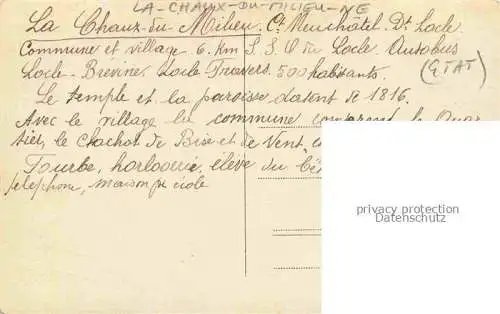 LA-CHAUX-DU-MILIEU-NE
La Chaux-du-Milieu. Ct Neuchâtel. Dt Locle
Commune et village 6. Km S.S.O du Locle. Autobus
Locle-Brévine. Locle Travers. 500 habitants.
(ETAT)
Le temple et la paroisse datent de 1816.
Avec le village la commune comprend le Quar
tier, le Cachot de Bise et de Vent,
Tourbe, horlogerie, éléve du
telephone, maison
privacy protection
Datenschutz